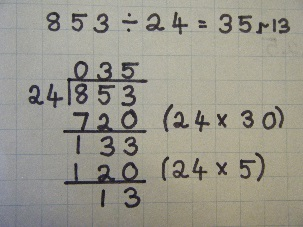 853 ÷ 24 = 35 r 13
035
24 853
720 (24 x 30)
133
120 (24 x 5)
13